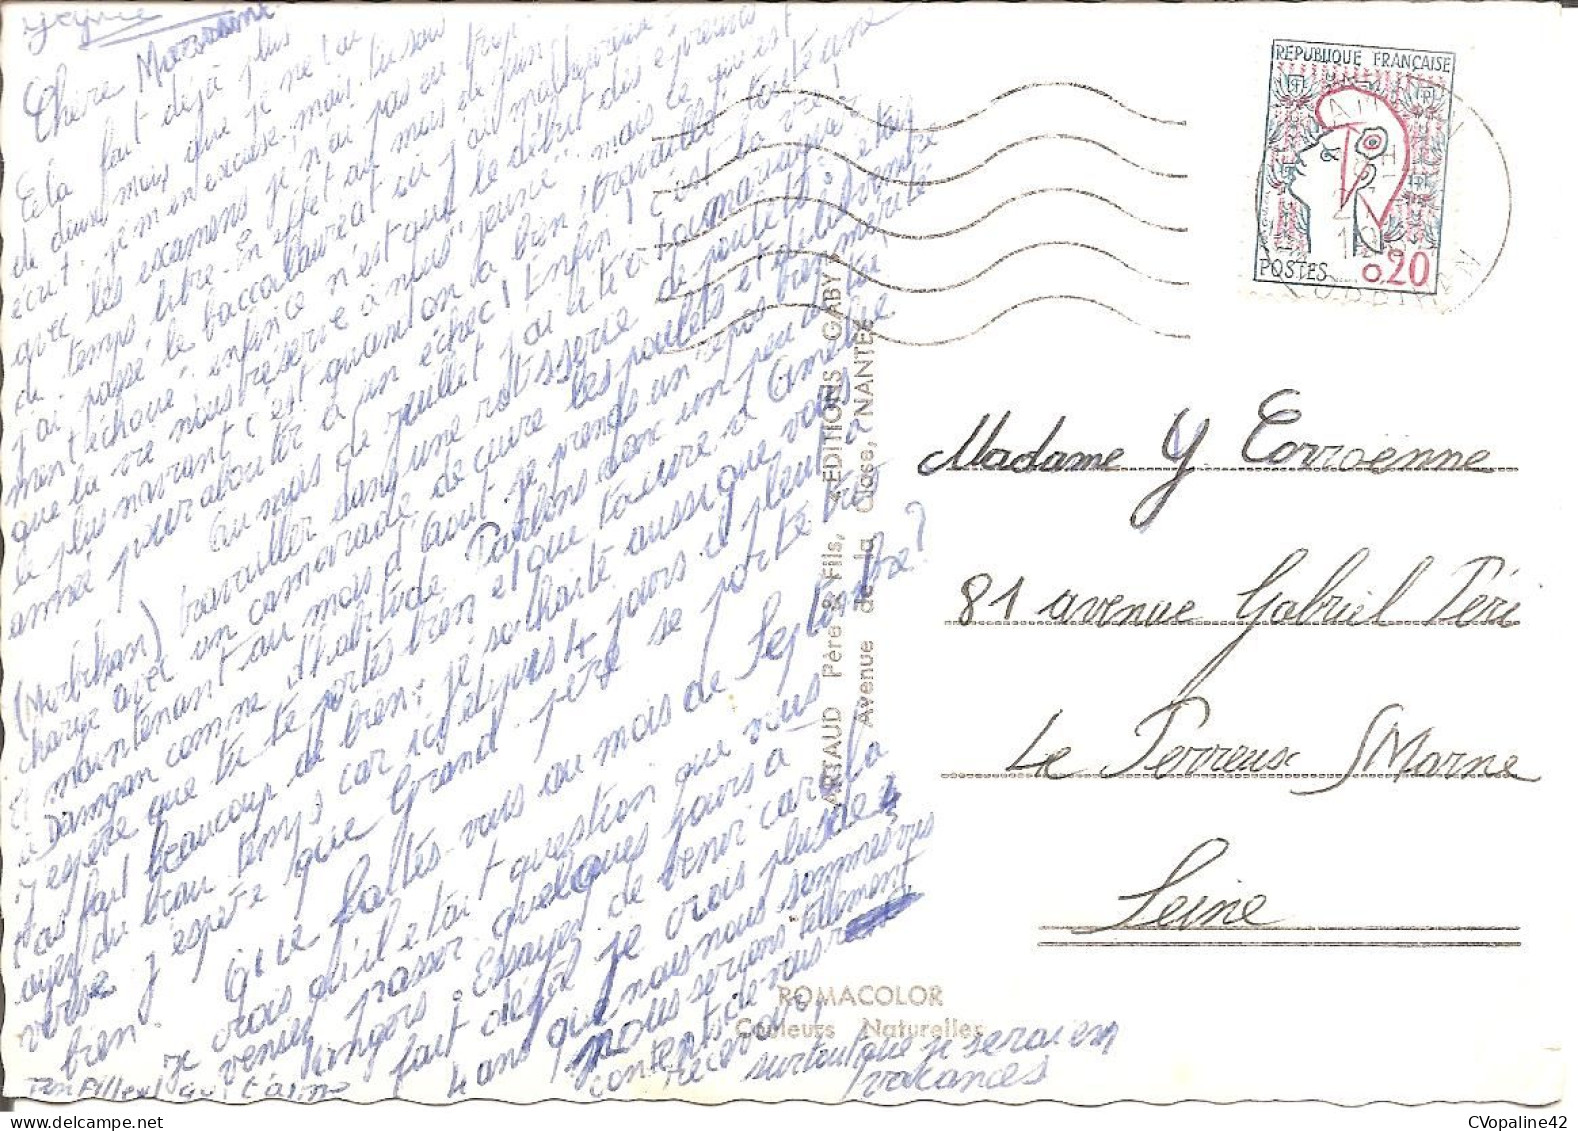 Chère Marraine
Cela fait déjà plus
de deux mois que je ne t'ai
écrit: je m'en excuse, mais tu sais
avec les examens je n'ai pas eu trop
de temps libre. En effet au mois de juin
j'ai passé le baccalauréat où j'ai malheureuse-
ment échoué; enfin ce n'est que le début des épreuves
que la vie nous réserve à nous "jeunes" mais ce qui est
le plus navrant c'est quand on a bien travaillé toute une
année pour aboutir à un échec! Enfin! c'est la vie!
au mois de juillet j'ai été à Locmariaquer
(Morbihan) travailler dans une rotisserie de poulets: étais
chargé avec un camarade de cuire les poulets et de les vendre
et maintenant au mois d'août je prends un repos bien mérité
à Damgan comme d'habitude. Parlons donc un peu de toi
j'espère que tu te portes bien et que ta
t'as fait beaucoup de bien; je souhaite aussi que vous
ayez du beau temps car ici depuis 4 jours il pleut à
verse. j'espère que Grand-père se porte très
bien.
Que faites-vous au mois de Septembre?
je crois qu'il était question que vous
veniez passer quelques jours à
Angers; Essayez de venir car cela
fait déjà je crois plus de 2
ans que nous nous sommes vus
nous serions tellement
contents de vous
recevoir,
surtout que je serai en
vacances
Ton filleul qui t'aime
ARTAUD Père & Fils, «EDITIONS GABY»
Avenue de la Close, NANTES
ROMACOLOR
Couleurs Naturelles
REPUBLIQUE FRANÇAISE
POSTES 0.20
MORBIHAN
Madame Y Corroënne
81 avenue Gabriel Péri
Le Perreux s/Marne
Seine
CVopaline42